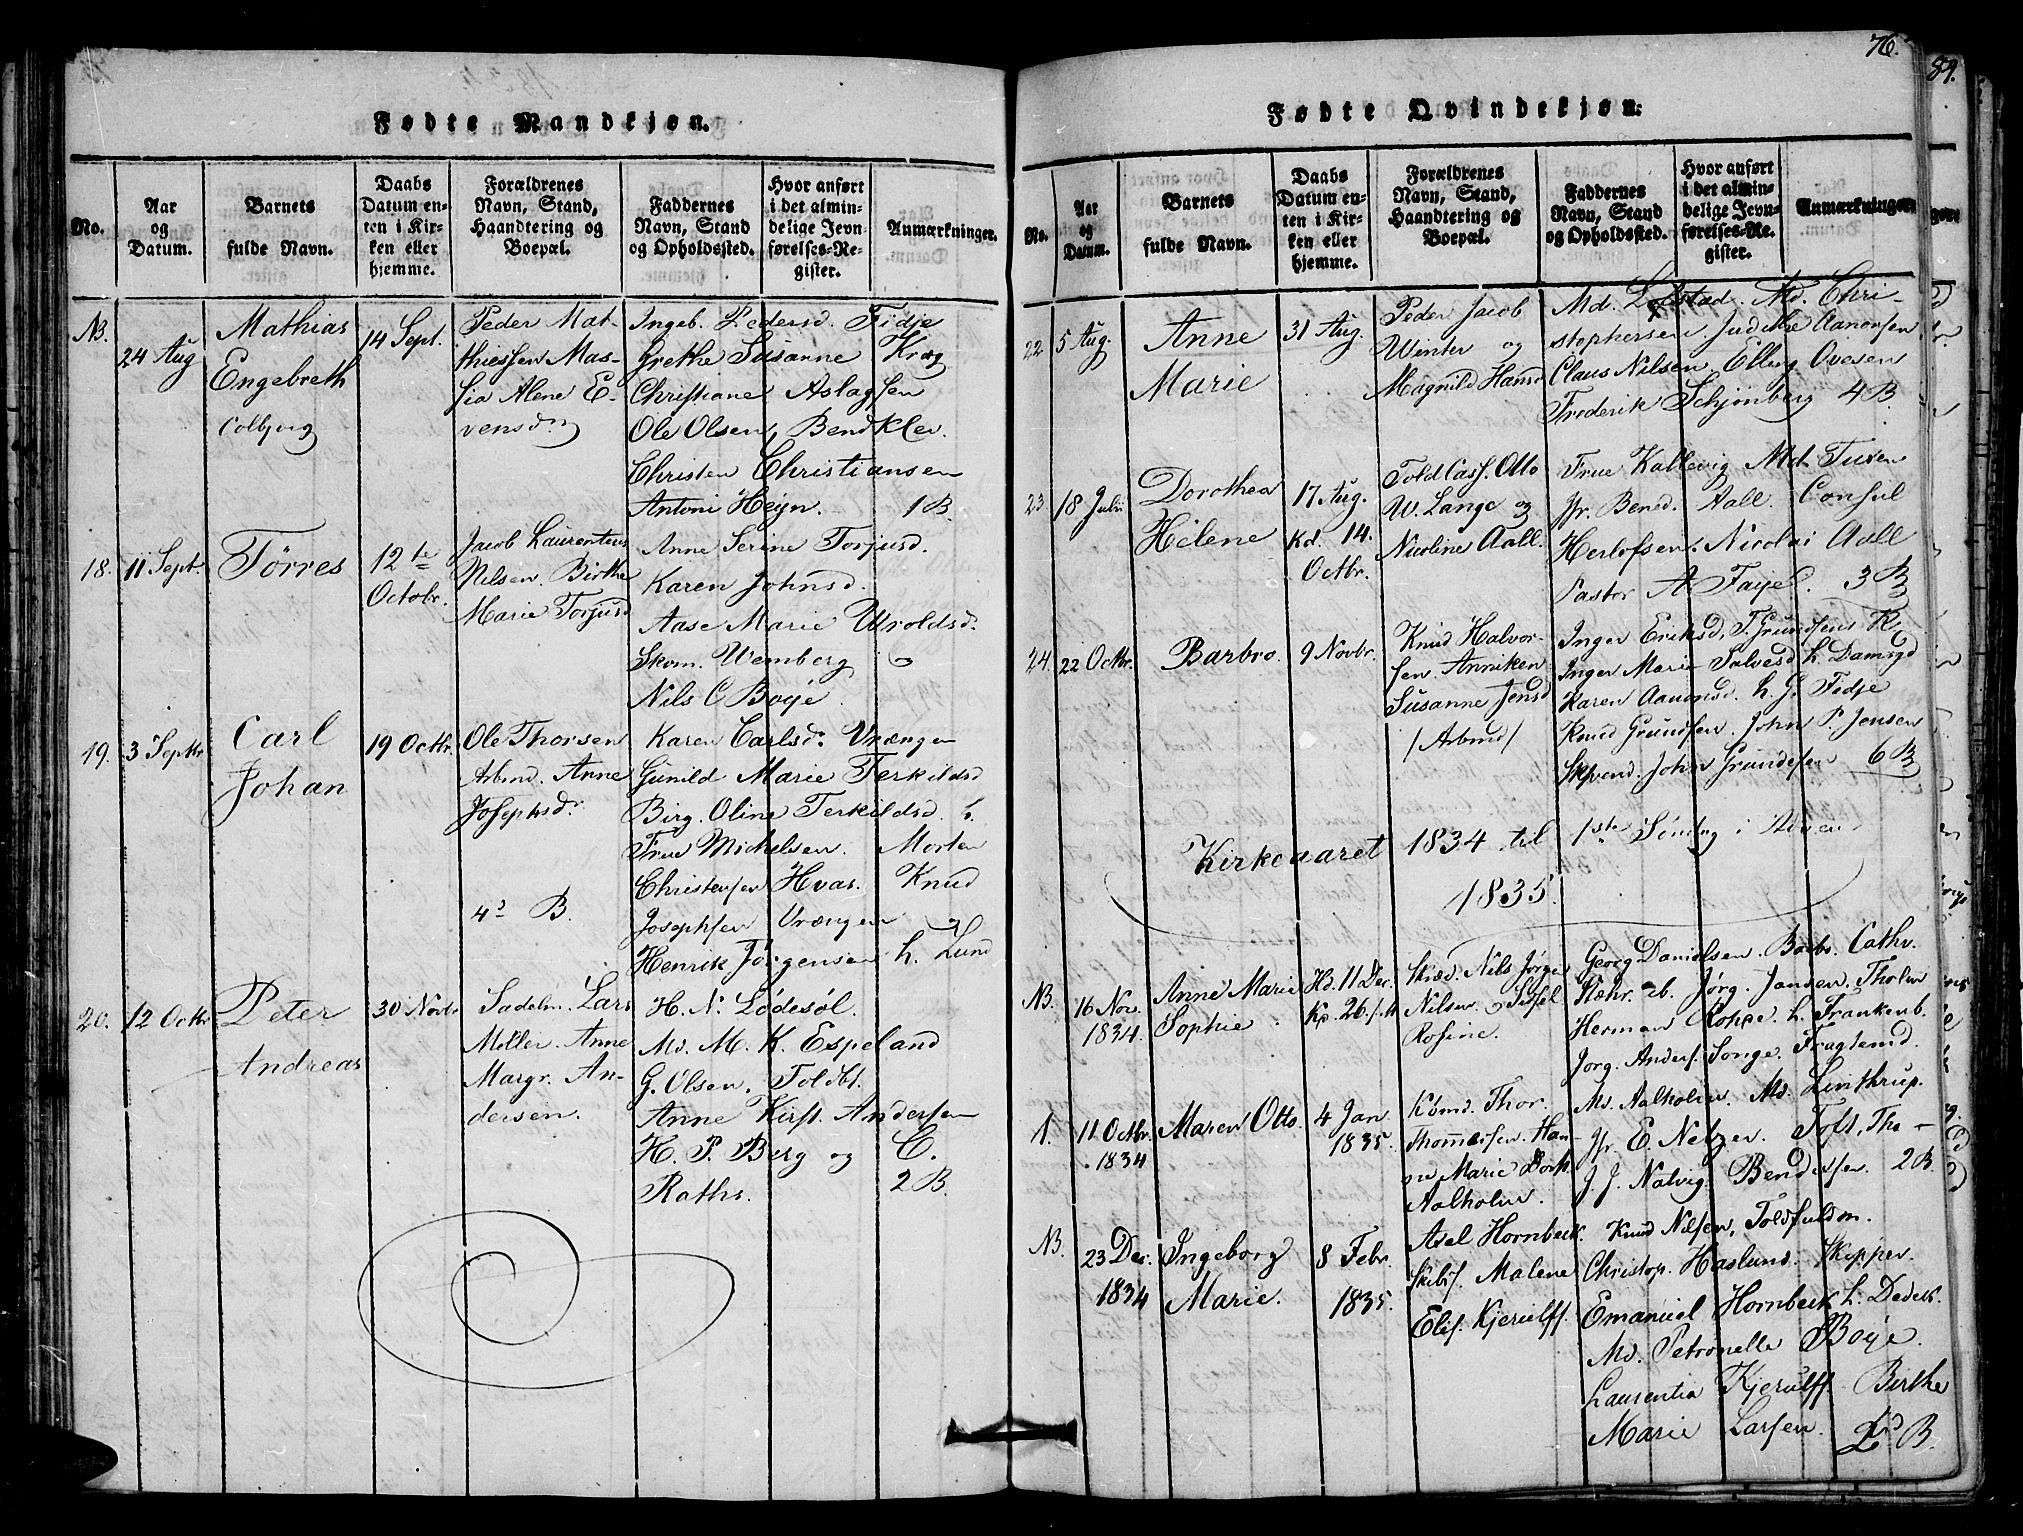 76.
89.
Fødte Mandkjøn.
No.
Aar
og
Datum.
Barnets
fulde Navn.
Daabs
Datum en-
ten i Kir-
ken eller
hjemme.
Forældrenes
Navn, Stand,
Haandtering og
Boepæl.
Faddernes
Navn, Stand
og Opholdssted.
Hvor anført
i det almin-
delige Jevn-
førelses-Re-
gister.
Anmærkninger.
NB.
24 Aug
Mathias
Engebreth
Colbjørg
14 Sept.
Peder Mat-
thiessen Mas-
sia Alene E-
vensd.
Ingeb. Pedersd. Fidje
Grethe Susanne Krag
Christiane Aslagsen
Ole Olsen, Bendklev.
Christen Christiansen
Antoni Heijn. 1 B.
18.
11 Sept.
Tørres
12te
Octobr.
Jacob Laurentius
Nilsen. Birthe
Marie Torjusd
Anne Serine Torjusd.
Karen Johnsd.
Aase Marie Uroldsd.
Skom. Wemberg og
Nils C Boye.
19.
3 Septbr
Carl
Johan
19 Octbr.
Ole Thorsen
Arbmd. Anne
Josephsdr
4 B.
Karen Carlsdr. Vrængen
Gunild Marie Terkildsd
Birg. Oline Terkildsd. h.
Frue Michelsen. Morten
Christensen Hvas. Knud
Josephsen Vrængen og
Henrik Jørgensen h. Lund
20.
12 Octbr
Peter
Andreas
30 Novbr
Sadelm. Lars
Møller. Anne
Margr. An-
dersen.
H. N. Lødesøl.
Md. M. K. Espeland
G. Olsen. Toldbt.
Anne Kirst. Andersen
H. P. Berg og C.
Raths. 2 B.
Fødte Qvindekjøn:
No.
Aar
og
Datum.
Barnets
fulde Navn.
Daabs
Datum en-
ten i Kir-
ken eller
hjemme.
Forældrenes
Navn, Stand,
Haandtering og
Boepæl.
Faddernes
Navn, Stand
og Opholdssted.
Hvor anført
i det almin-
delige Jevn-
førelses-Re-
gister.
Anmærkninger.
22
5 Aug.
Anne
Marie
31 Aug.
Peder Jacob
Winter og
Magnild Hansd
Md. Løfstad. Md. Chri-
stophersen. Judithe Aanonsen
Claus Nilsen. Ellevg Ovesen
Frederik Schjønberg 4 B.
23
18 Julii
Dorothea
Helene
17 Aug.
Kd. 14.
Octbr.
Told Cass. Otto
W. Lange og
Nicoline Aall.
Frue Kallevig Md. Tuxen
Jfr. Bened. Aall. Consul
Herlofsen. Nicolai Aall
Pastor A Faye. 3 B
24.
22 Octbr.
Barbro.
9 Novbr.
Knud Halvor-
sen. Anniken
Susanne Jensd
/Arbmd/
Inger Eriksd, T. Grundsens K.
Inger Marie Salvesd h. Damsgd
Karen Aanonsd. h. G. Fidje
Knud Grundsen. John P. Jensen
Skpend. John Grundesen 6 B
Kirkeaaret 1834 til 1ste Søndag i Adven
1835.
NB.
16 Nov.
1834.
Anne Marie
Sophie
Hd. 11 Dec.
Kp. 26/ M
Skræd. Nils Jørgen
Nilsen og Sissel
Rosine.
Georg Danielsen. Barbr. Cathr.
Stæhr. eb. Jørg. Jansen. Tholm
Herman Rohde. h. Frankenb.
Jorg. Anders. Songe. Fragtemd.
1.
11 Octbr.
1834
Maren Otto.
4 Jan
1835.
Kbmd. Thor.
Thommesen. Han-
ne Marie Dorth.
Aalholm.
Md. Aalholm. Md. Linthrup.
Jfr. E. Netzer. Toft, Tho-
J. J. Nalvig. Bendixsen. 2 B.
NB.
23 Dec.
1834
Ingeborg
Marie.
8 Febr.
1835.
Axel Hornbeck.
Skibsf. Malene
Elis. Kjerulff.
Knud Nilsen, Toldfuldm.
Christop. Haslund. Skipper.
Emanuel Hornbeck h. Dedek.
Md. Petronelle Boye.
Laurentia Kjerulff. Birthe
Marie Larsen. 2 B.